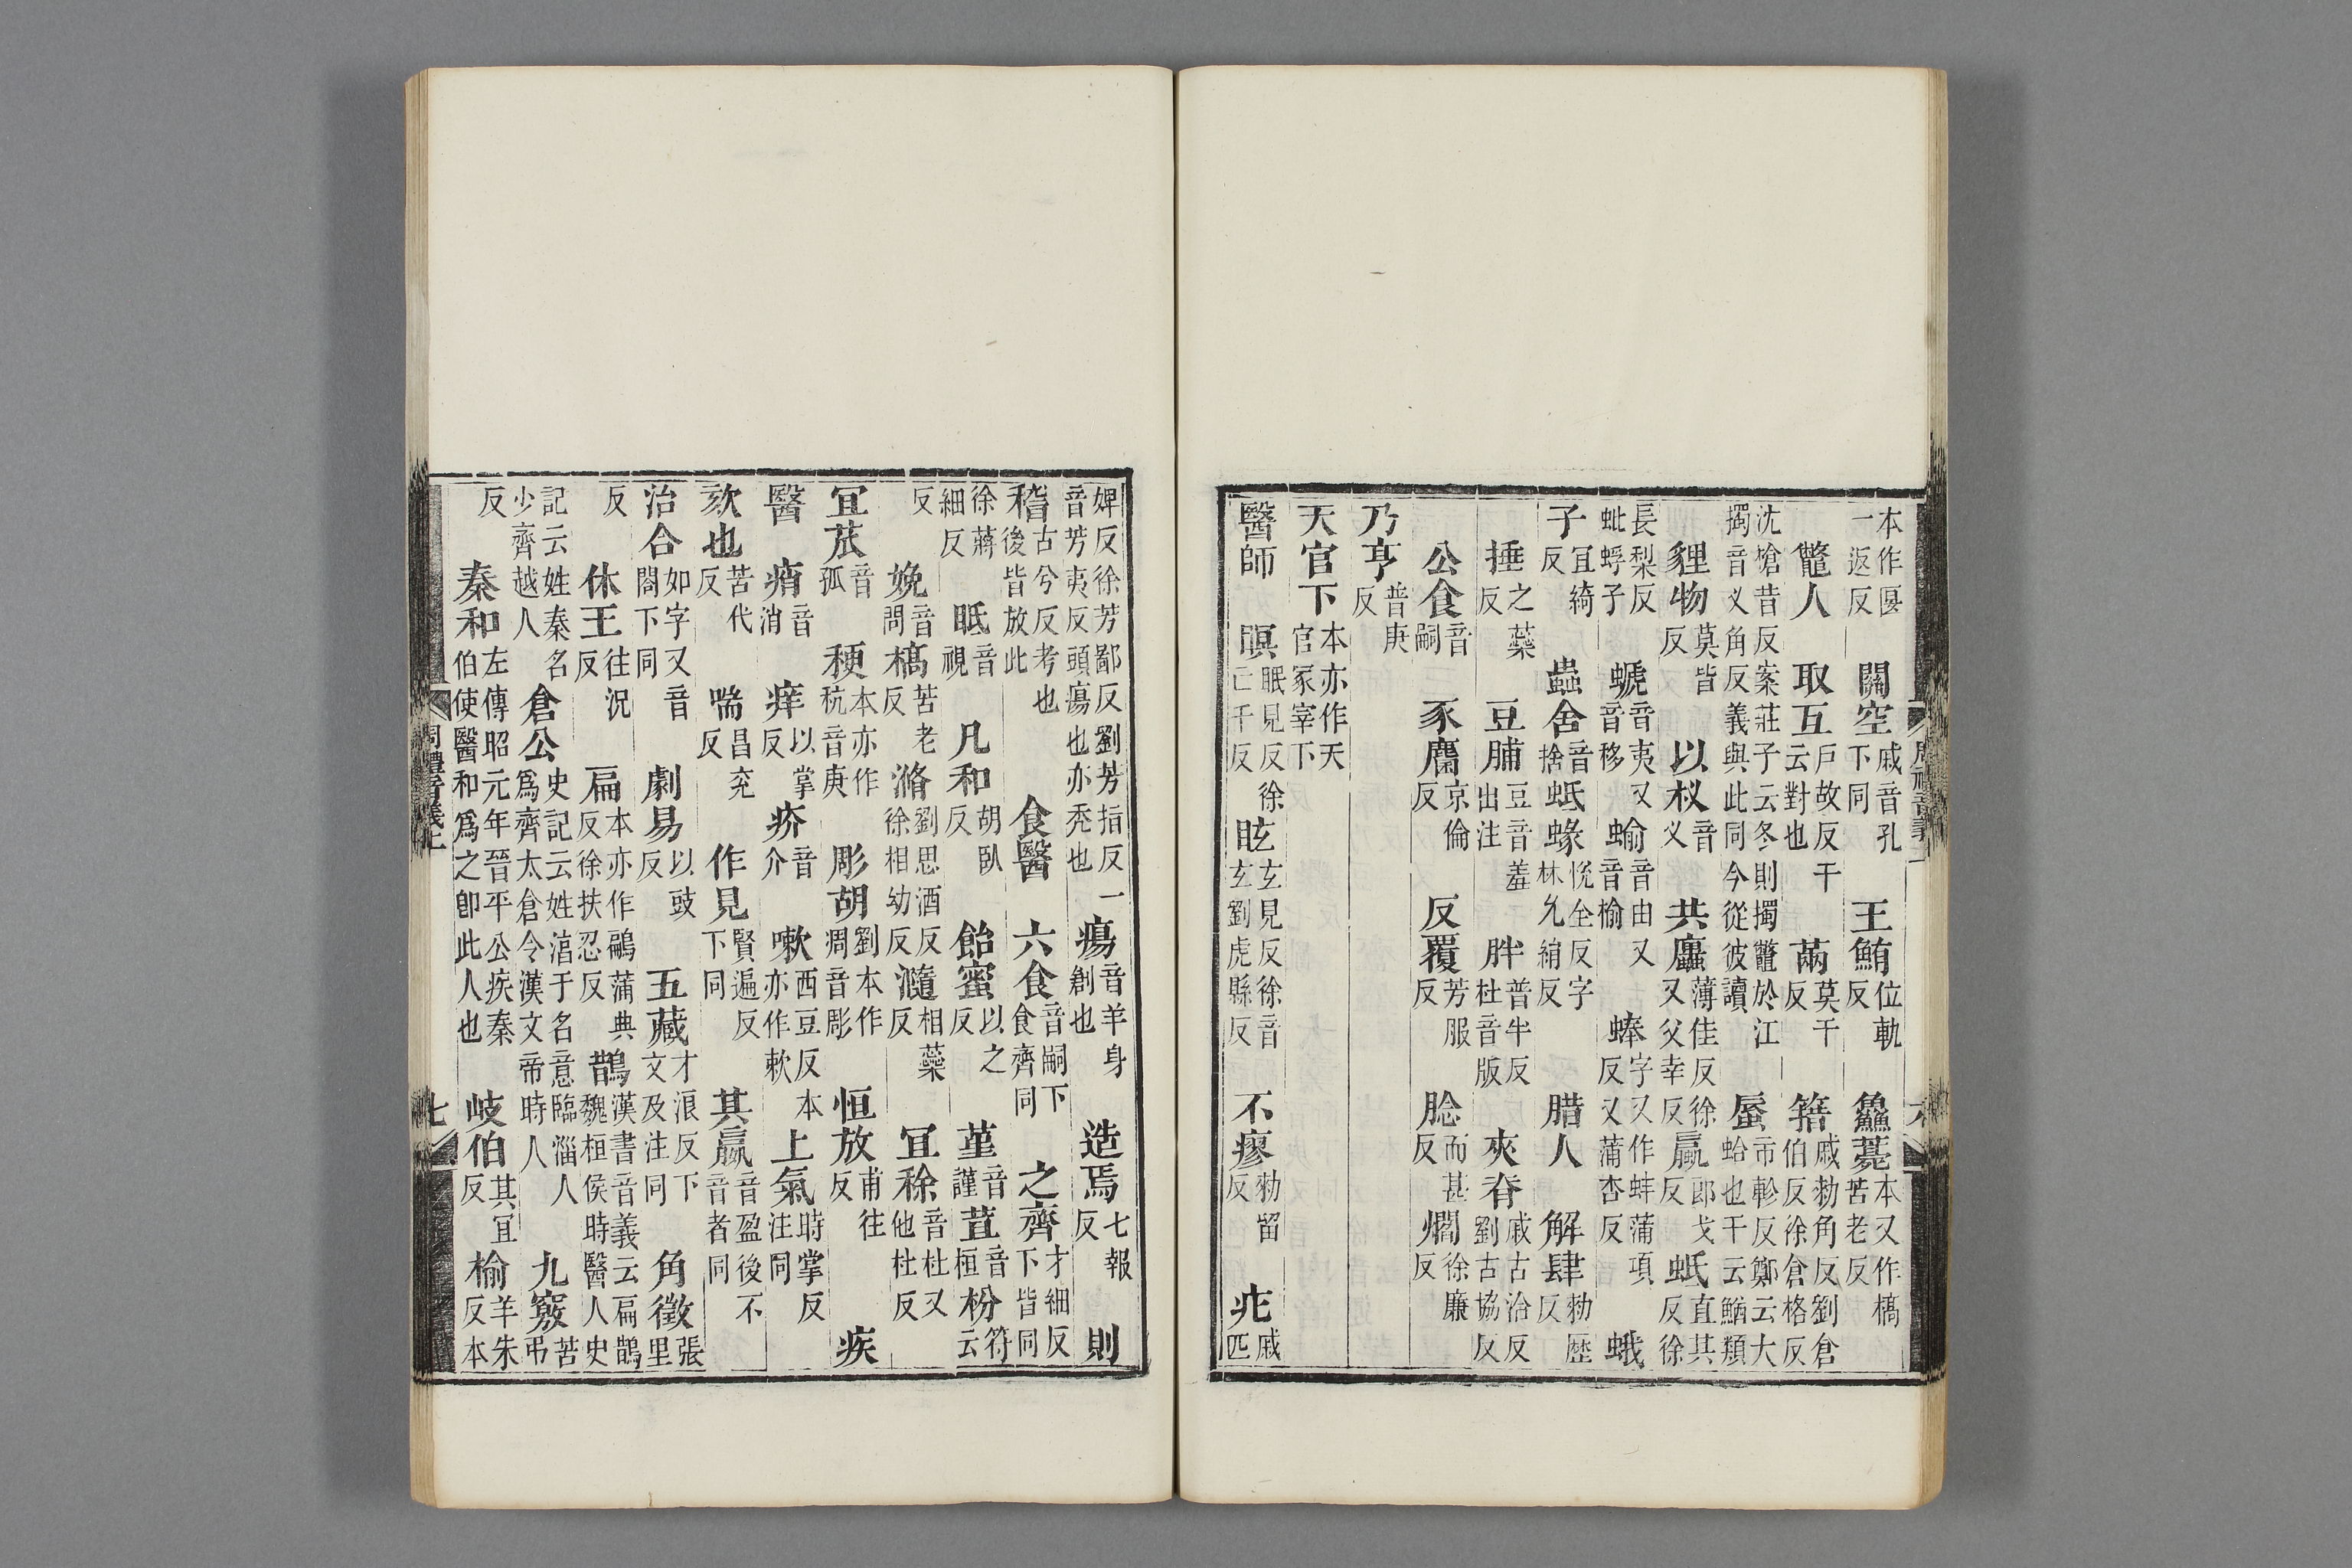 本作匽一返反 關空戚音孔下同 王鮪位軌反 鱻薧本又作槁苦老反
鼈人 取互戶故反干云對也 䓣莫干反 簎戚勑角反劉倉伯反徐倉格反
沈槍昔反案莊子云冬則擉鼈於江擉音义角反義與此同今從彼讀 蜃市軫反鄭云大蛤也干云䲡類
貍物莫皆反 以杈音义 共蠯薄佳反徐又父幸反 蠃郎戈反 蚳直其反徐
長梨反蚍蜉子 螔音夷又音移 蝓音由又音榆 蜯字又作蚌蒲項反又蒲杏反 蛾
子宜綺反 蟲舍音捨 蚳蝝悅全反字林允絹反 腊人 解肆勑歷反
捶之蘂反 豆脯豆音羞出注 胖普半反杜音版 夾脊戚古洽反劉古協反
公食音嗣 豕麕京倫反 反覆芳服反 腍而甚反 燗徐廉反
乃亨普庚反
天官下本亦作天官冢宰下
醫師 瞑眠見反徐亡千反 眩玄見反徐音玄劉虎縣反 不瘳勑留反 疕戚匹
婢反徐芳鄙反劉芳指反一音芳夷反頭瘍也亦禿也 瘍音羊身創也 造焉七報反 則
稽古兮反考也後皆放此 食醫 六食音嗣下食齊同 之齊才細反下皆同
徐蔣細反 眡音視 凡和胡臥反 飴蜜以之反 堇音謹 荁音桓 枌符云
反 娩音問 槁苦老反 滫劉思酒反徐相幼反 瀡相蘂反 宜稌音杜又他杜反
宜苽音孤 稉本亦作秔音庚 彫胡劉本作凋音彫 恒放甫往反 疾
醫 痟音消 痒以掌反 疥音介 嗽西豆反本亦作欶 上氣時掌反注同
欬也苦代反 喘昌兗反 作見賢遍反下同 其贏音盈後不音者同
治合如字又音閤下同 劇易以豉反 五藏才浪反下文及注同 角徵張里
反 休王往況反 扁本亦作鶣蒲典反徐扶忍反 鵲漢書音義云扁鵲魏桓侯時醫人史
記云姓秦名少齊越人 倉公史記云姓淳于名意臨淄人爲齊太倉令漢文帝時人 九竅苦弔
反 秦和左傳昭元年晉平公疾秦伯使醫和爲之卽此人也 岐伯其宜反 榆羊朱反本
周禮音義上 七